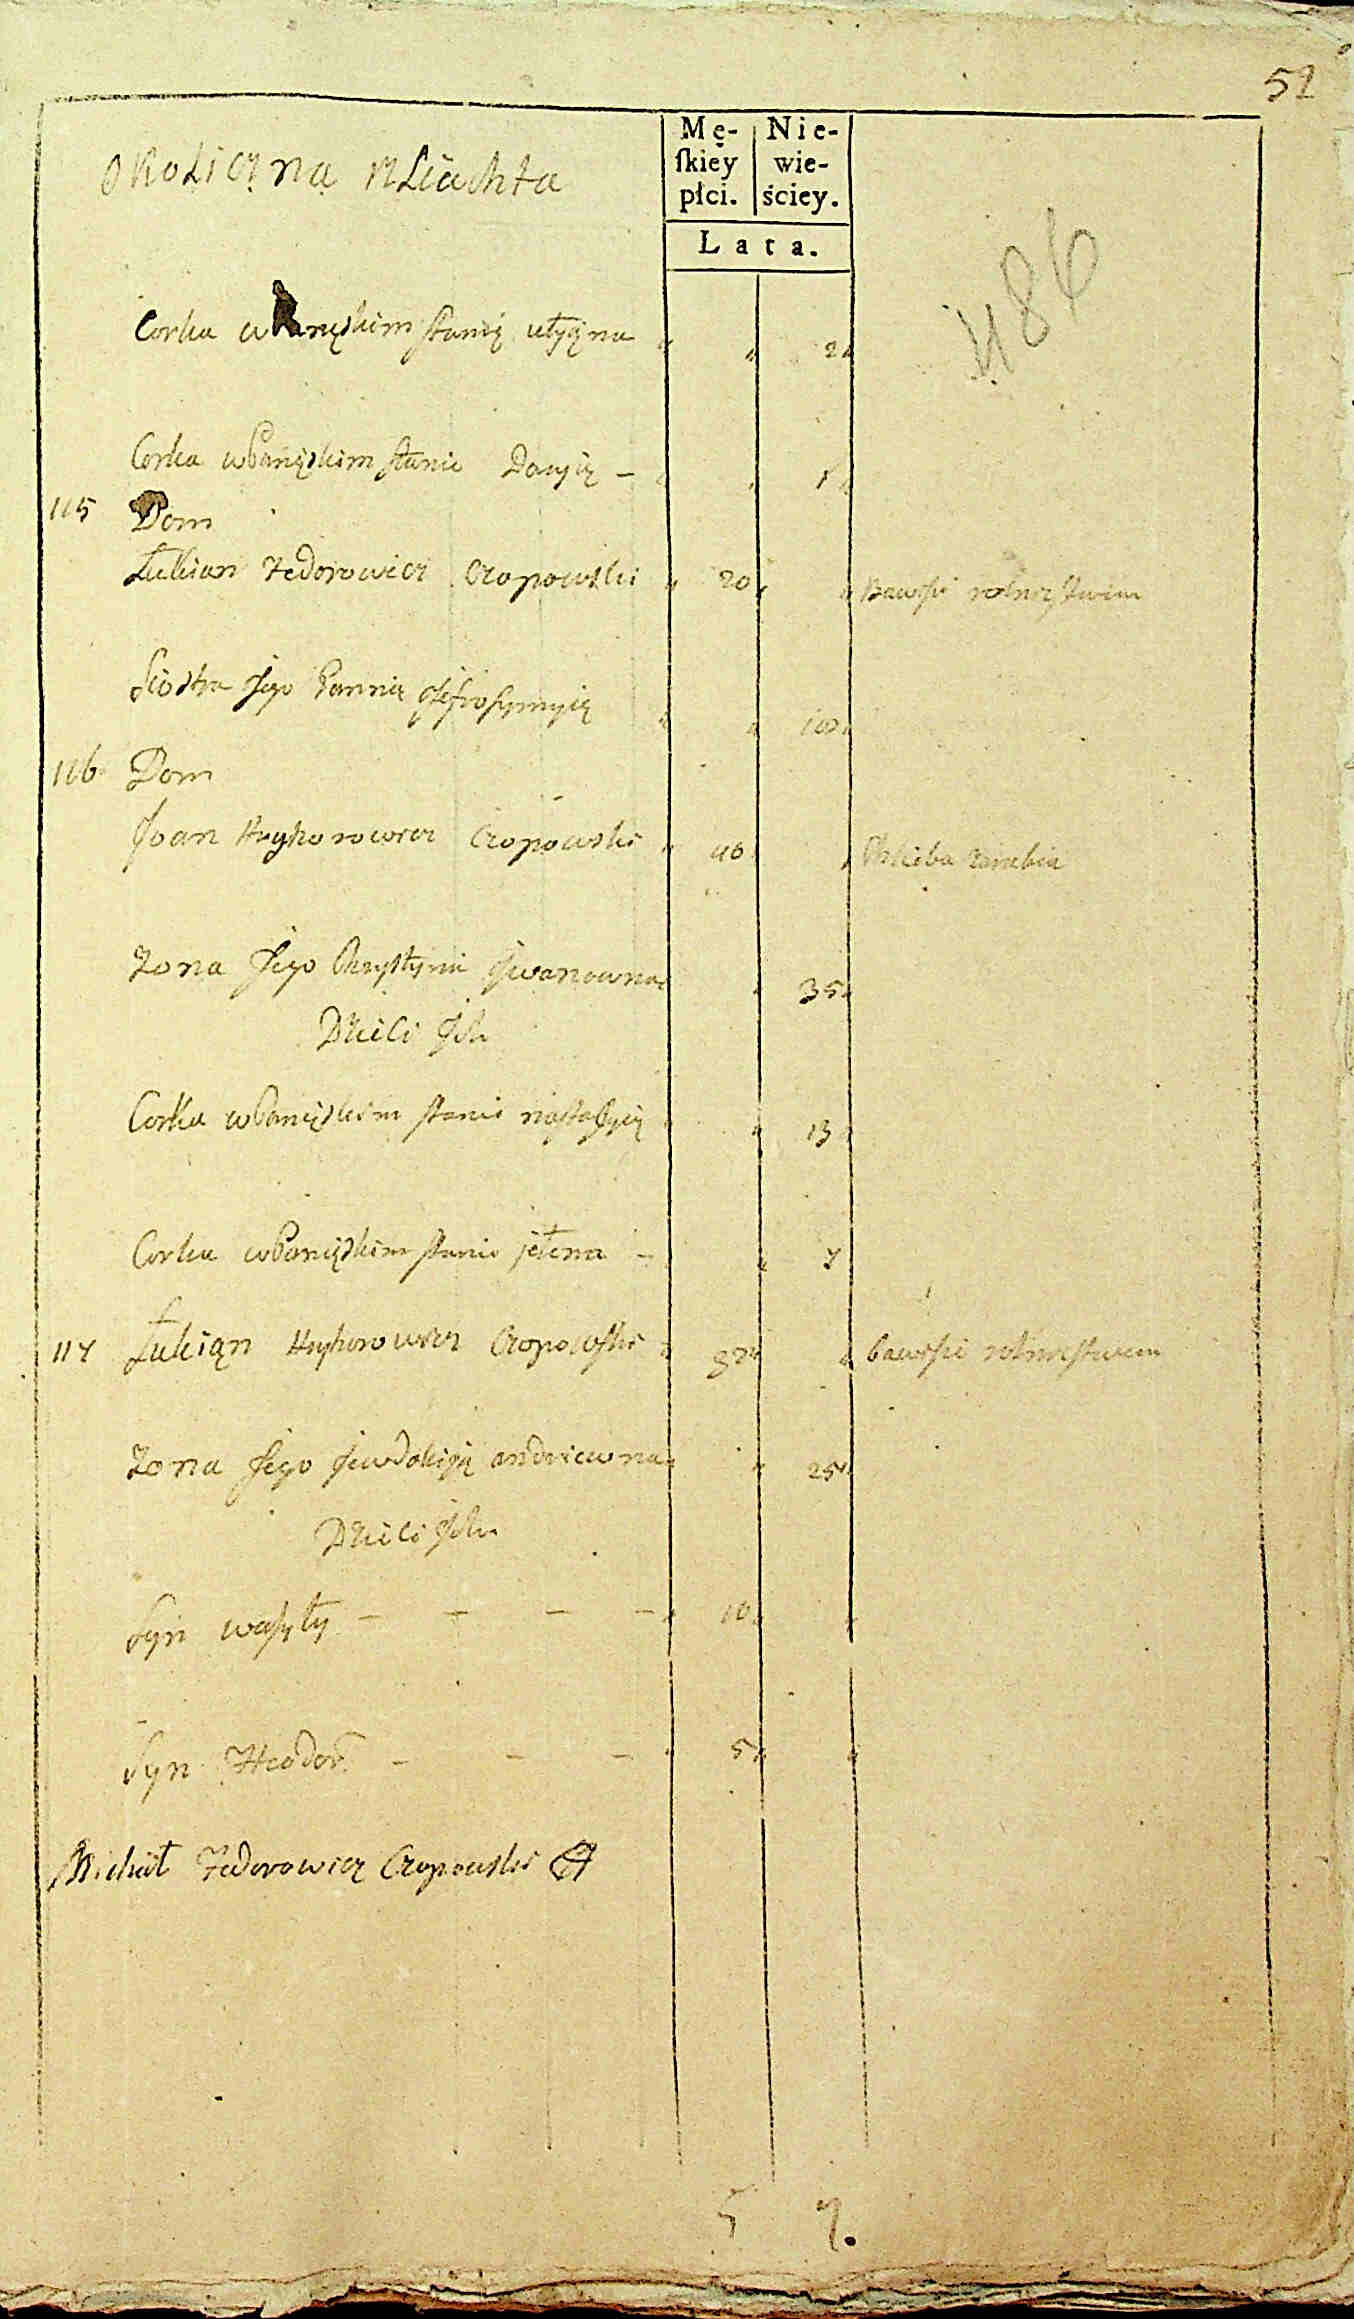 51
okolicżna szliachta
Mę-
skiey
płci.
Nie-
wie-
ściey.
Lata.
486
Corka w Panięskim stanię ułyąna 2
Corka w Panięskim stanie Daryię – 1
115 Dom
Łukian Fedorowicz Czopowski 20 Bawisie rolniczstwim
Siostra Jego Pannię Jefrosynyię 10
116 Dom
Joan Hryhorowicz Czopowski 40 Chlieba zarabia
Zona Jego Chrystyna Jwanowna 35
Dzieci Jch
Corka w Panięskim stanie nastasyię 13
Corka w Panięskim stanie jełena – 7
117 Łukiąn Hryhorowicz Czopowski bawisie rolniczstwem
Zona Jego Jewdokiją andriewna 25
Dzieci Jch
Syn wasyły – – – – 10
Syn Fteodor – – – 5
Michał Fedorowicz Czopowski
5 7.